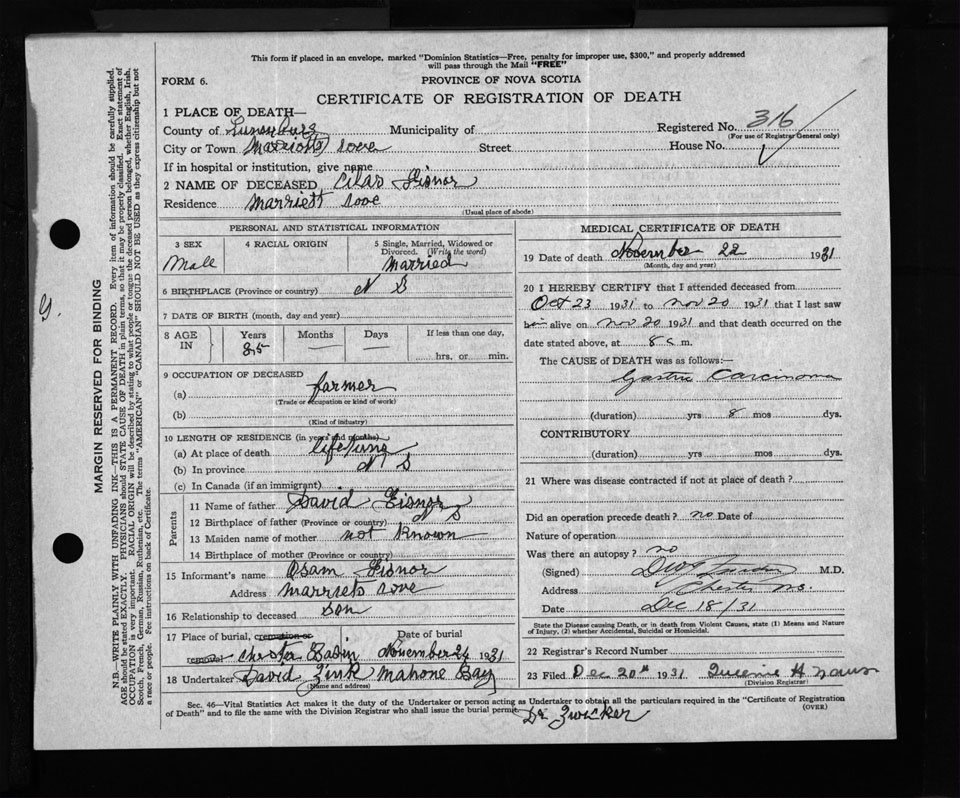 This form if placed in an envelope, marked "Dominion Statistics—Free, penalty for improper use, $300," and properly addressed
will pass through the Mail "FREE"
FORM 6.
PROVINCE OF NOVA SCOTIA
CERTIFICATE OF REGISTRATION OF DEATH
1 PLACE OF DEATH—
County of Lunenburg Municipality of Registered No. 316
(For use of Registrar General only)
City or Town Marriotts Cove Street House No.
If in hospital or institution, give name
2 NAME OF DECEASED Cilas Eisnor
Residence Marriett Cove
(Usual place of abode)
PERSONAL AND STATISTICAL INFORMATION
3 SEX
Male
4 RACIAL ORIGIN
5 Single, Married, Widowed or
Divorced. (Write the word)
Married
6 BIRTHPLACE (Province or country) N S
7 DATE OF BIRTH (month, day and year)
8 AGE IN
Years
85
Months
—
Days
If less than one day,
hrs. or min.
9 OCCUPATION OF DECEASED
(a) farmer
(Trade or occupation or kind of work)
(b)
(Kind of industry)
10 LENGTH OF RESIDENCE (in years and months)
(a) At place of death life time
(b) In province N S
(c) In Canada (if an immigrant)
Parents
11 Name of father David Eisnor
12 Birthplace of father (Province or country) N S
13 Maiden name of mother not known
14 Birthplace of mother (Province or country)
15 Informant's name Osam Eisnor
Address Marriets Cove
16 Relationship to deceased son
17 Place of burial, cremation or
removal Chester Basin
Date of burial
November 24 1931
18 Undertaker David Zink Mahone Bay
(Name and address)
MEDICAL CERTIFICATE OF DEATH
19 Date of death November 22 1931
(Month, day and year)
20 I HEREBY CERTIFY that I attended deceased from
Oct 23 1931 to Nov 20 1931 that I last saw
him alive on Nov 20 1931 and that death occurred on
date stated above, at 8 a m.
The CAUSE of DEATH was as follows:—
Gastric Carcinoma
(duration) yrs 8 mos dys.
CONTRIBUTORY
(duration) yrs mos dys.
21 Where was disease contracted if not at place of death?
Did an operation precede death? no Date of
Nature of operation
Was there an autopsy? no
(Signed) M.D.
Address Chester N.S.
Date Dec 18/31
State the Disease causing Death, or in death from Violent Causes, state (1) Means and Nature
of Injury, (2) whether Accidental, Suicidal or Homicidal.
22 Registrar's Record Number
23 Filed Dec 20th 1931 Queenie H
(Division Registrar)
Sec. 46—Vital Statistics Act makes it the duty of the Undertaker or person acting as Undertaker to obtain all the particulars required in the "Certificate of Registration
of Death" and to file the same with the Division Registrar who shall issue the burial permit.
(OVER)
Dr. Zwicker
MARGIN RESERVED FOR BINDING
N.B.—WRITE PLAINLY WITH UNFADING INK—THIS IS A PERMANENT RECORD. Every item of information should be carefully supplied.
AGE should be stated EXACTLY. PHYSICIANS should STATE CAUSE OF DEATH in plain terms, so that it may be properly classified. Exact statement of
OCCUPATION is very important. RACIAL ORIGIN will be described by stating to what people or tongue the deceased person belonged, whether English, Irish,
Scotch, French, German, Russian, Ruthenian, etc. The terms "AMERICAN" or "CANADIAN" SHOULD NOT BE USED as they express citizenship but not
a race or people. Fee instructions on back of Certificate.